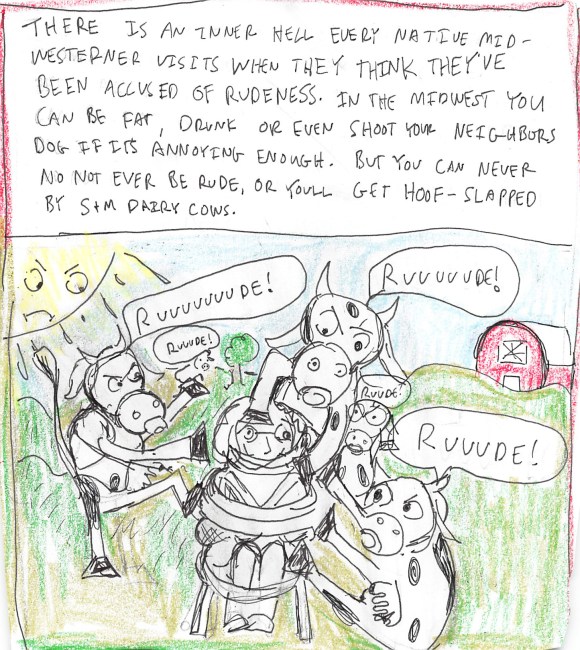 THERE IS AN INNER HELL EVERY NATIVE MID-
WESTERNER VISITS WHEN THEY THINK THEY'VE
BEEN ACCUSED OF RUDENESS. IN THE MIDWEST YOU
CAN BE FAT, DRUNK OR EVEN SHOOT YOUR NEIGHBORS
DOG IF ITS ANNOYING ENOUGH. BUT YOU CAN NEVER
NO NOT EVER BE RUDE, OR YOULL GET HOOF-SLAPPED
BY S+M DAIRY COWS.
RUUUUUUUDE!
RUUUUUDE!
RUUUDE!
RUUDE!
RUUUDE!